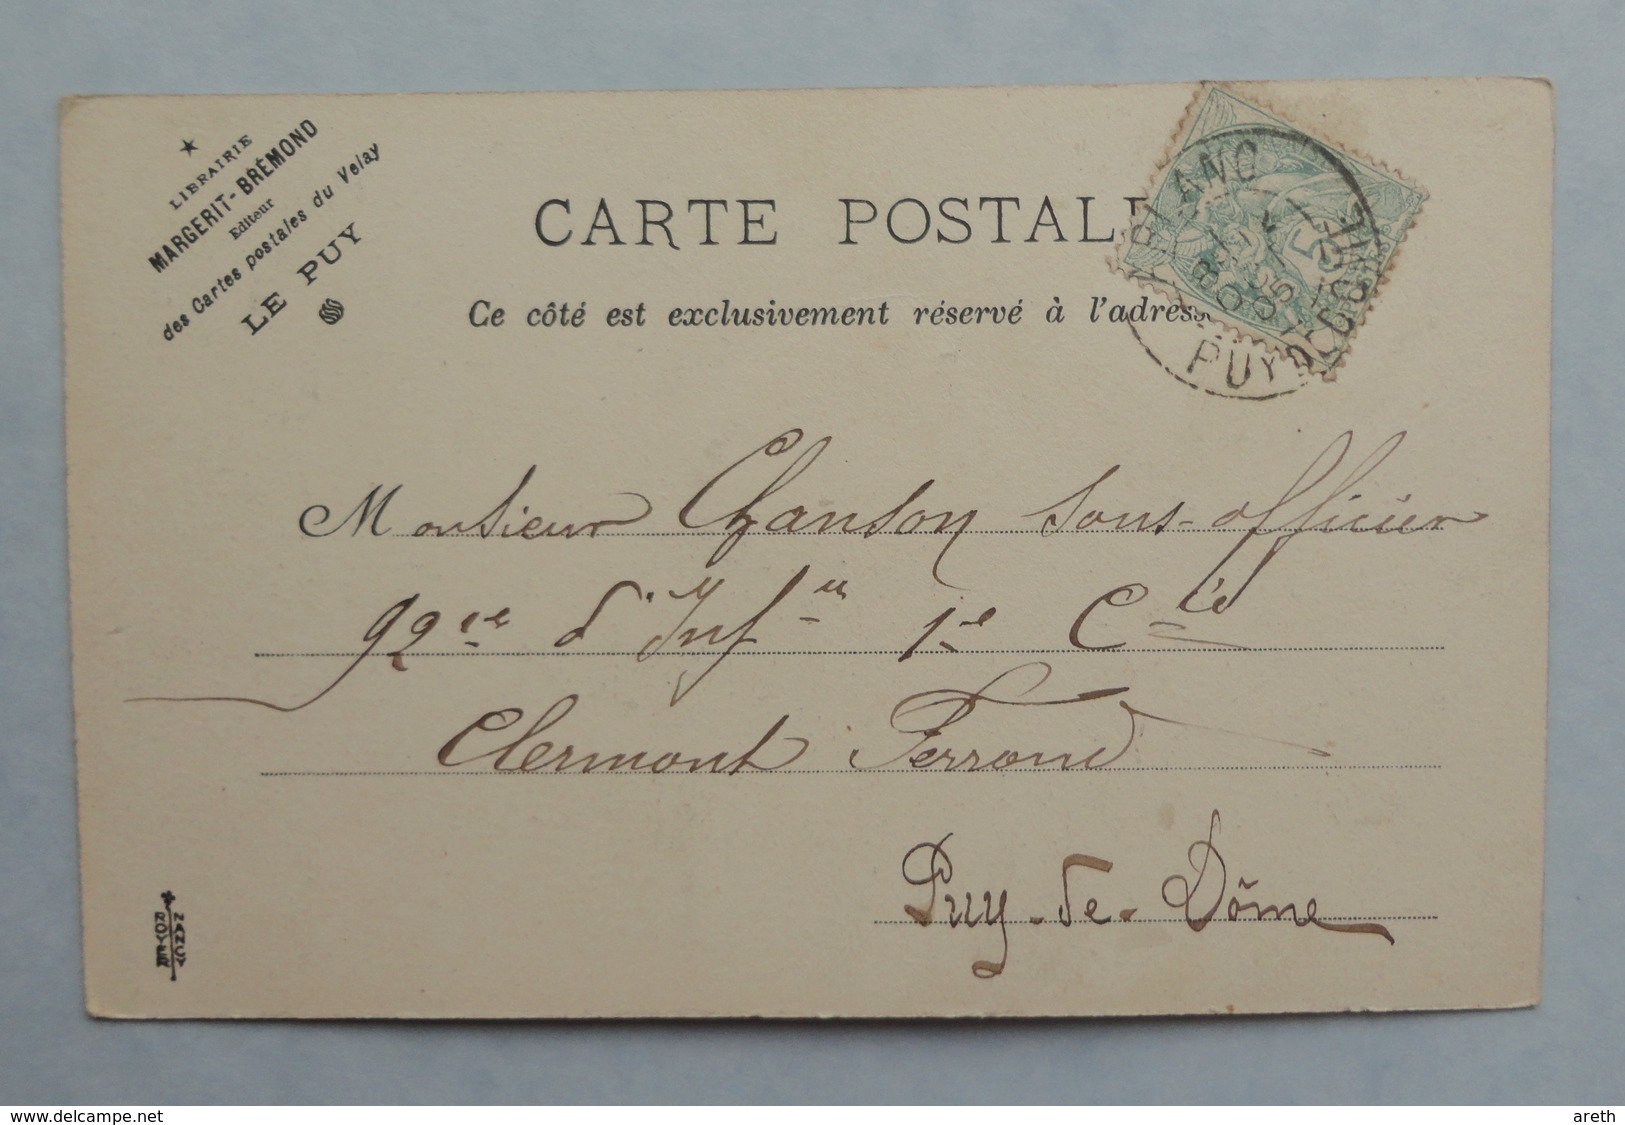 LIBRAIRIE
MARGERIT-BRÉMOND
Editeur
des Cartes postales du Velay
LE PUY
CARTE POSTALE
Ce côté est exclusivement réservé à l'adresse
PUY
Monsieur Chanson sous-officier
92e d'Infie 1e Cie
Clermont Ferrand
Puy-de-Dôme
NANCY
ROYER
www.delcampe.net
areth